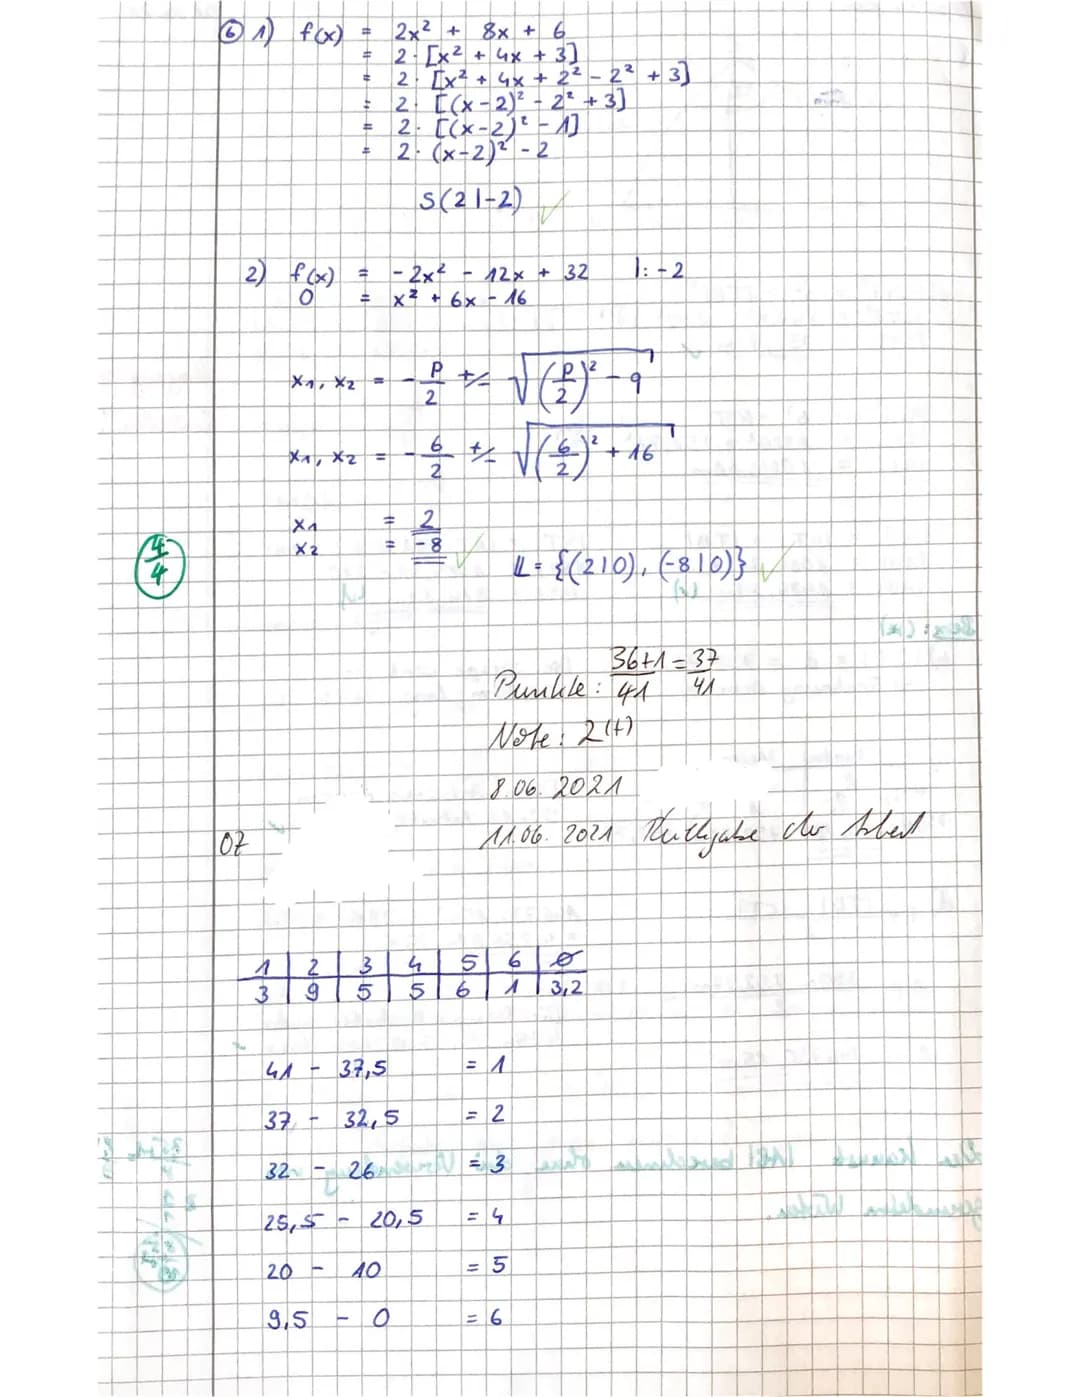 ⑥ 1) f(x) = 2x² + 8x + 6
= 2·[x² + 4x + 3]
= 2·[x² + 4x + 2² - 2² + 3]
= 2·[(x-2)² - 2² + 3]
= 2·[(x-2)² - 1]
= 2·(x-2)² - 2
S(2|-2) ✓
2) f(x) = -2x² - 12x + 32 |: -2
0 = x² + 6x - 16
x1, x2 = -p/2 +/- √((p/2)² - q)
x1, x2 = -6/2 +/- √((6/2)² + 16)
x1 = 2
x2 = -8 ✓
4/4
L = {(2|0), (-8|0)} ✓
Punkte: 36+1/41 = 37/41
Note: 2(+)
8.06.2021
11.06.2021 Rückgabe der Arbeit
07
1 2 3 4 5 6 Ø
3 9 5 5 6 1 3,2
41 - 37,5 = 1
37 - 32,5 = 2
32 - 26 = 3
25,5 - 20,5 = 4
20 - 10 = 5
9,5 - 0 = 6